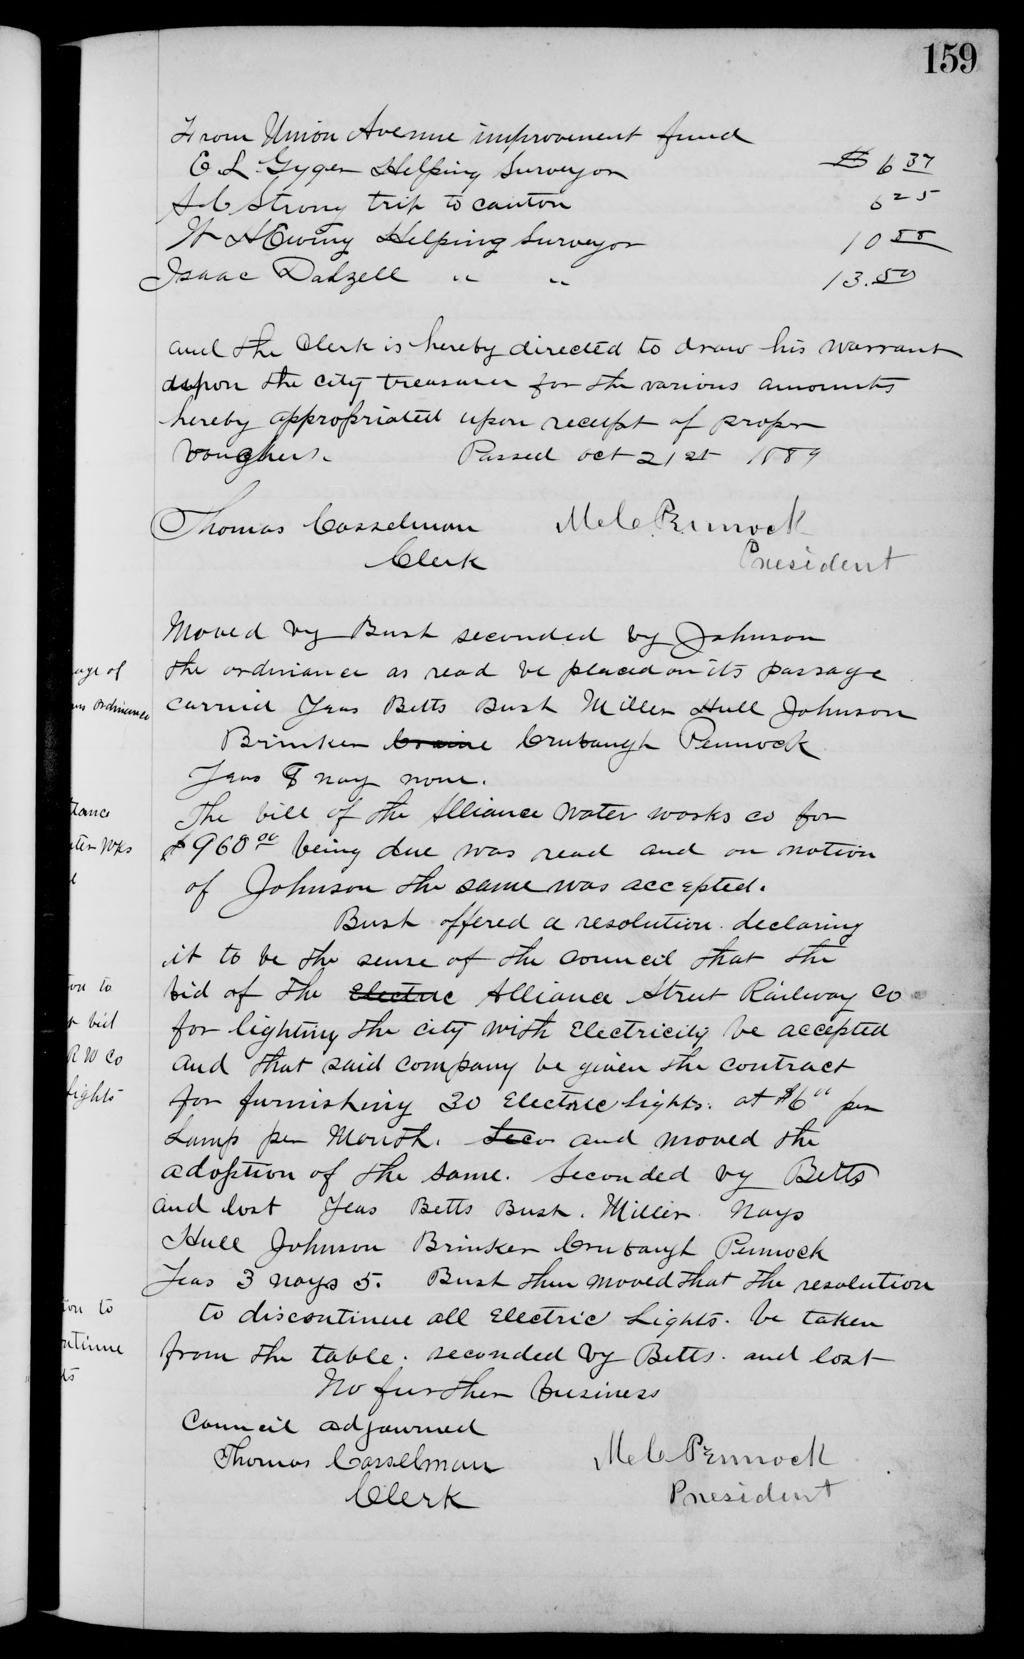 159
From Union Avenue improvement fund
E L Gyger Helping Surveyor $6 37
S C Strong trip to canton 6 25
W H Ewing Helping Surveyor 10 88
Isaac Dalzell " " 13.50
and the Clerk is hereby directed to draw his warrant
upon the city treasurer for the various amounts
hereby appropriated upon receipt of proper
vouchers. Passed oct 21st 1889
Thomas Casselman M C Pennock
Clerk President
Moved by Bush seconded by Johnson
age of
the ordinance as read be placed on its passage
ordinance
carried Yeas Betts Bush Miller Hull Johnson
Brinker Craine Crubaugh Pennock
Yeas 8 nay none.
The bill of the Alliance water works co for
$960 00 being due was read and on motion
ter Wks
of Johnson the same was accepted.
Bush offered a resolution declaring
it to be the sense of the council that the
on to
bid of the Electric Alliance Street Railway Co
bid
for lighting the city with Electricity be accepted
R W Co
and that said company be given the contract
Lights
for furnishing 30 Electric Lights. at $6 00 per
Lamp per Month. Seco and moved the
adoption of the same. Seconded by Betts
and lost Yeas Betts Bush. Miller Nays
Hull Johnson Brinker Crubaugh Pennock
Yeas 3 nays 5. Bush then moved that the resolution
ion to
to discontinue all Electric Lights. be taken
ntinue
from the table. seconded by Betts. and lost
ts
No further business
Council adjourned
Thomas Casselman M C Pennock
Clerk President